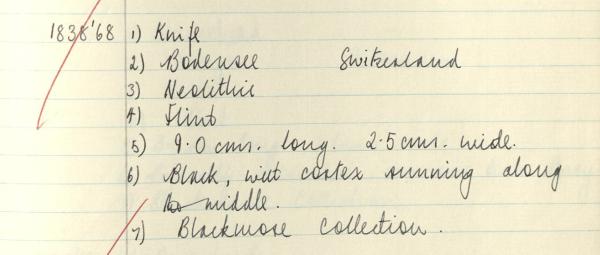 1838'68 1) Knife
2) Bodensee Switzerland
3) Neolithic
4) Flint
5) 9.0 cms. long. 2.5 cms. wide.
6) Black, with cortex running along
middle.
7) Blackmore Collection.